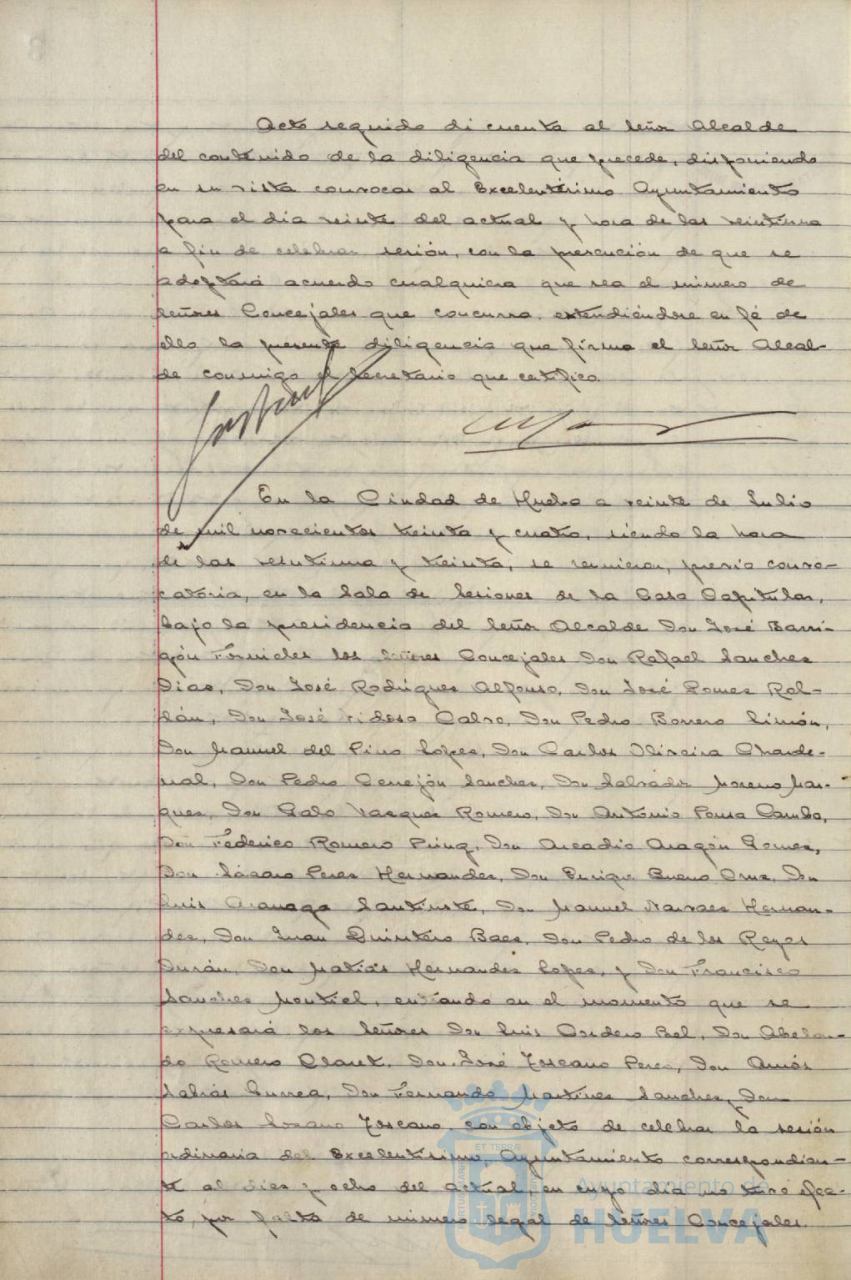 Acto seguido di cuenta al Señor Alcalde
del contenido de la diligencia que precede, disponiendo
en su vista convocar al Excelentísimo Ayuntamiento
para el día veinte del actual y hora de las veintiuna
a fin de celebrar sesión, con la precaución de que se
adoptará acuerdo cualquiera que sea el número de
Señores Concejales que concurra, extendiéndose en fé de
ello la presente diligencia que firma el Señor Alcal-
de conmigo el Secretario que certifico.
En la Ciudad de Huelva a veinte de Julio
de mil novecientos treinta y cuatro, siendo la hora
de las veintiuna y treinta, se reunieron, previa convo-
catoria, en la Sala de Sesiones de la Casa Capitular,
bajo la presidencia del Señor Alcalde Don José Barri-
gón Fornieles los Señores Concejales Don Rafael Sanchez
Diaz, Don José Rodríguez Alfonso, Don José Gomez Rol-
dán, Don José Fidosa Calvo, Don Pedro Borrero Limón,
Don Manuel del Pino Lopez, Don Carlos Oliveira Charde-
nal, Don Pedro Cerrejón Sanchez, Don Salvador Moreno Mar-
quez, Don Galo Vazquez Romero, Don Antonio Ponsa Camba,
Don Federico Romero Piña, Don Arcadio Aragón Gomez,
Don Lázaro Perez Hernandez, Don Enrique Bueno Cruz, Don
Luis Don Manuel Narvaez Hernan-
dez, Don Juan Quintero Baez, Don Pedro de los Reyes
Durán, Don Matías Hernandez Lopez, y Don Francisco
Sanchez Montiel, entrando en el momento que se
expresará los Señores Don Luis Cordero Bel, Don Abelar-
do Romero Claret, Don José Toscano Perez, Don Amós
Sabrás Gurrea, Don Fernando Martínez Sanchez, y Don
Carlos Lozano Toscano, con objeto de celebrar la sesión
ordinaria del Excelentísimo Ayuntamiento correspondien-
te al diez y ocho del actual, en cuyo día no tuvo efec-
to, por falta de número legal de Señores Concejales.
Ayuntamiento de
HUELVA